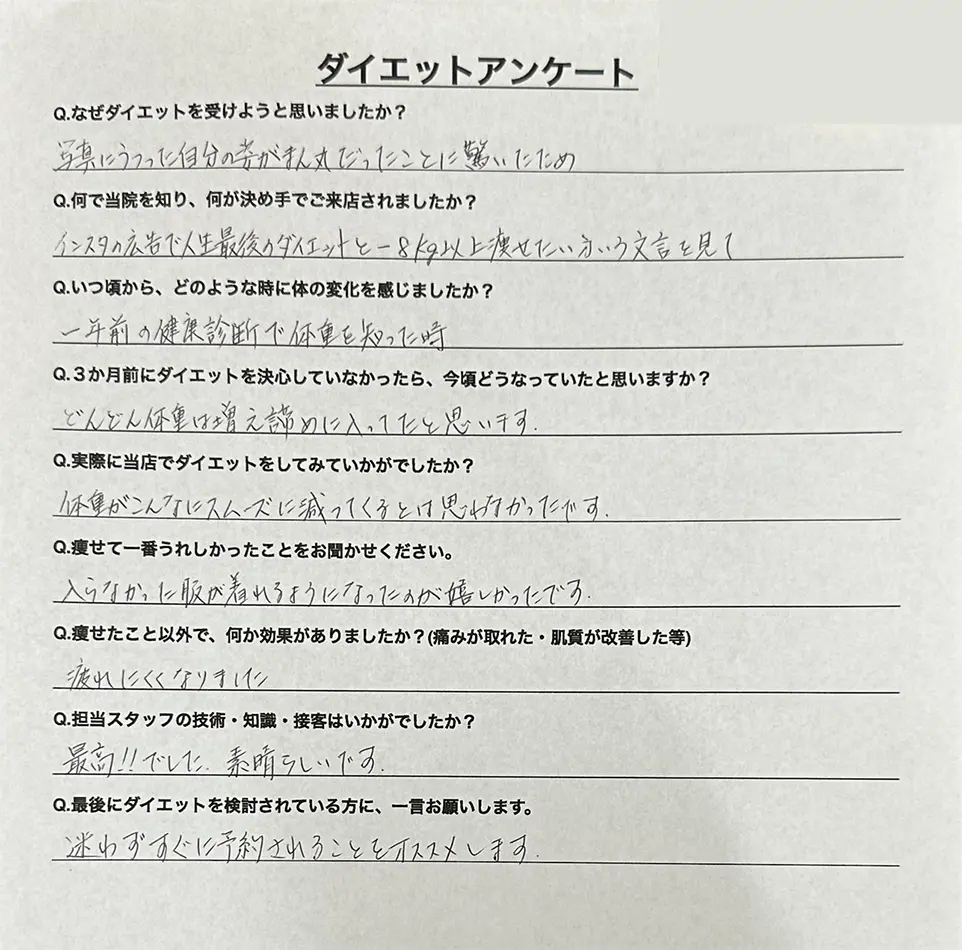 ダイエットアンケート
Q.なぜダイエットを受けようと思いましたか？
写真にうつった自分の姿がまん丸だったことに驚いたため
Q.何で当院を知り、何が決め手でご来店されましたか？
インスタの広告で人生最後のダイエットと-8kg以上痩せたい方いう文言を見て
Q.いつ頃から、どのような時に体の変化を感じましたか？
一年前の健康診断で体重を知った時
Q.３か月前にダイエットを決心していなかったら、今頃どうなっていたと思いますか？
どんどん体重は増え諦めに入ってたと思います.
Q.実際に当店でダイエットをしてみていかがでしたか？
体重がこんなにスムーズに減ってくるとは思わなかったです.
Q.痩せて一番うれしかったことをお聞かせください。
入らなかった服が着れるようになったのが嬉しかったです.
Q.痩せたこと以外で、何か効果がありましたか？(痛みが取れた・肌質が改善した等)
疲れにくくなりました
Q.担当スタッフの技術・知識・接客はいかがでしたか？
最高!!でした. 素晴らしいです.
Q.最後にダイエットを検討されている方に、一言お願いします。
迷わずすぐに予約されることをオススメします.